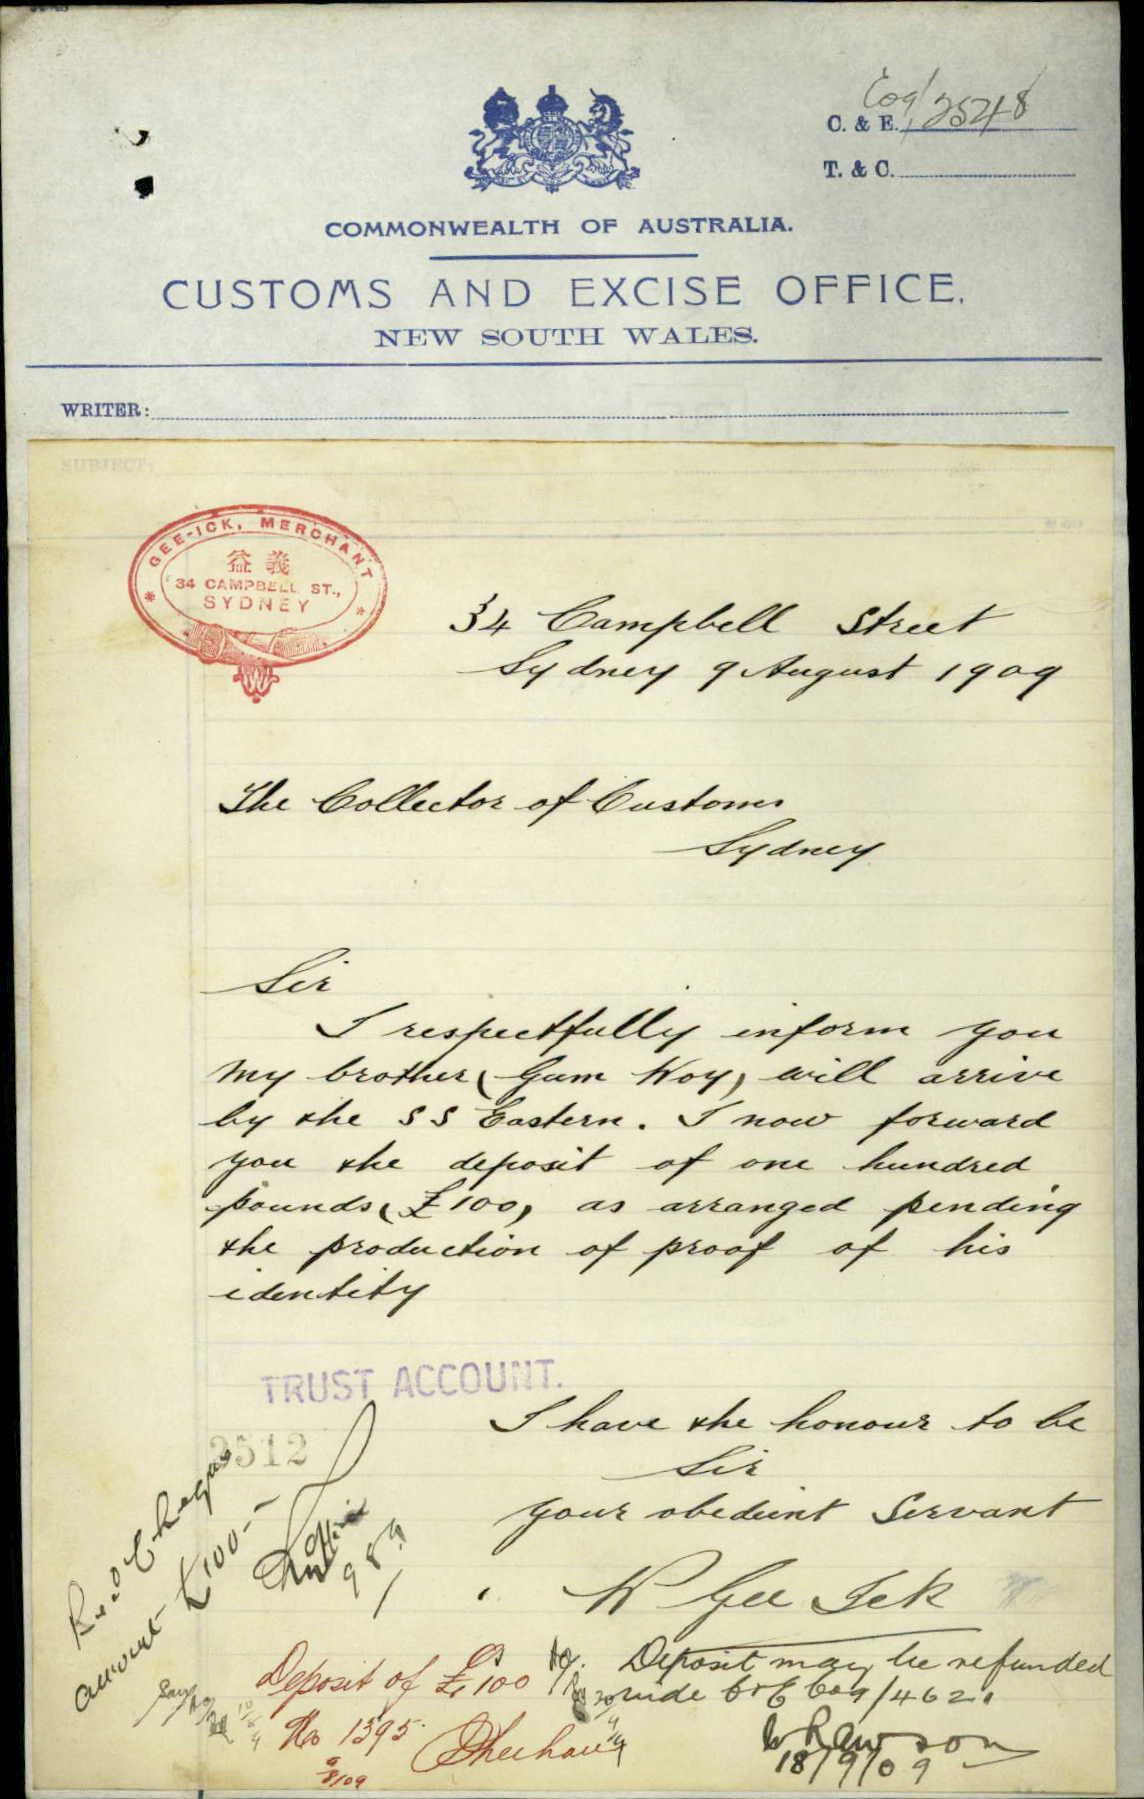 C. & E. C09/2548
T. & C.
COMMONWEALTH OF AUSTRALIA.
CUSTOMS AND EXCISE OFFICE.
NEW SOUTH WALES.
WRITER:
SUBJECT:
* GEE-ICK, MERCHANT *
益 義
34 CAMPBELL ST.,
SYDNEY
34 Campbell Street
Sydney 9 August 1909
The Collector of Customs
Sydney
Sir
I respectfully inform you
my brother (Gum Hoy) will arrive
by the SS Eastern. I now forward
you the deposit of one hundred
pounds (£100) as arranged pending
the production of proof of his
identity
TRUST ACCOUNT.
I have the honour to be
Sir
your obedient Servant
2512
Rec'd Cheque
amount £100--
9 8 9
Gee Ick
Deposit of £100
No 1395
9/8/09
Deposit may be refunded
vide C&E C09/4621
18/9/09